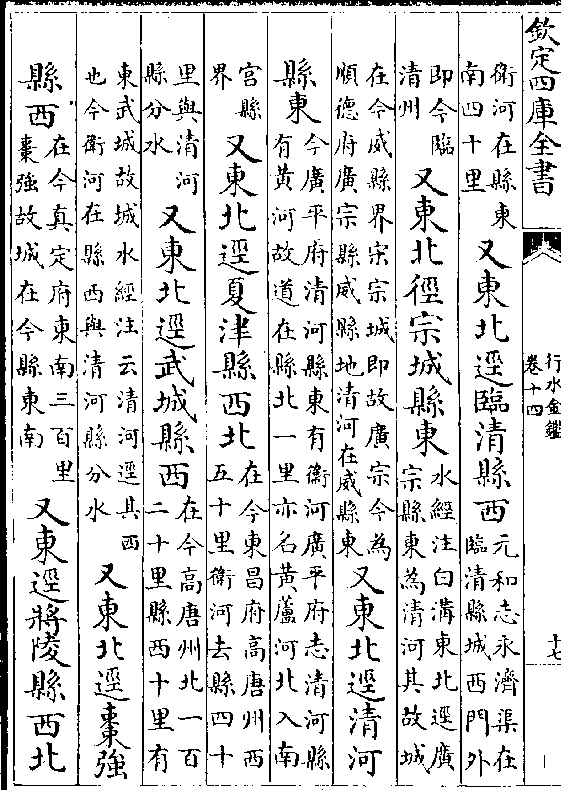 欽定四庫全書
行水金鑑
卷十四
十七
衛河在縣東
南四十里
又東北逕臨清縣西
元和志永濟渠在
臨清縣城西門外
即今臨
清州
又東北徑宗城縣東
水經注曰溝東北逕廣
宗縣東為清河其故城
在今威縣界宗宗城即故廣宗今為
順德府廣宗縣威縣地清河在威縣東
又東北逕清河
縣東
今廣平府清河縣東有衛河廣平府志清河縣
有黃河故道在縣北一里亦名黃蘆河北入南
宫縣
界
又東北逕夏津縣西北
在今東昌府高唐州西
五十里衛河去縣四十
里與清河
縣分水
又東北逕武城縣西
在今高唐州北一百
二十里縣西十里有
東武城故城水經注云清河逕其西
也今衛河在縣西與清河縣分水
又東北逕棗強
縣西
在今真定府東南三百里
棗強故城在今縣東南
又東逕將陵縣西北